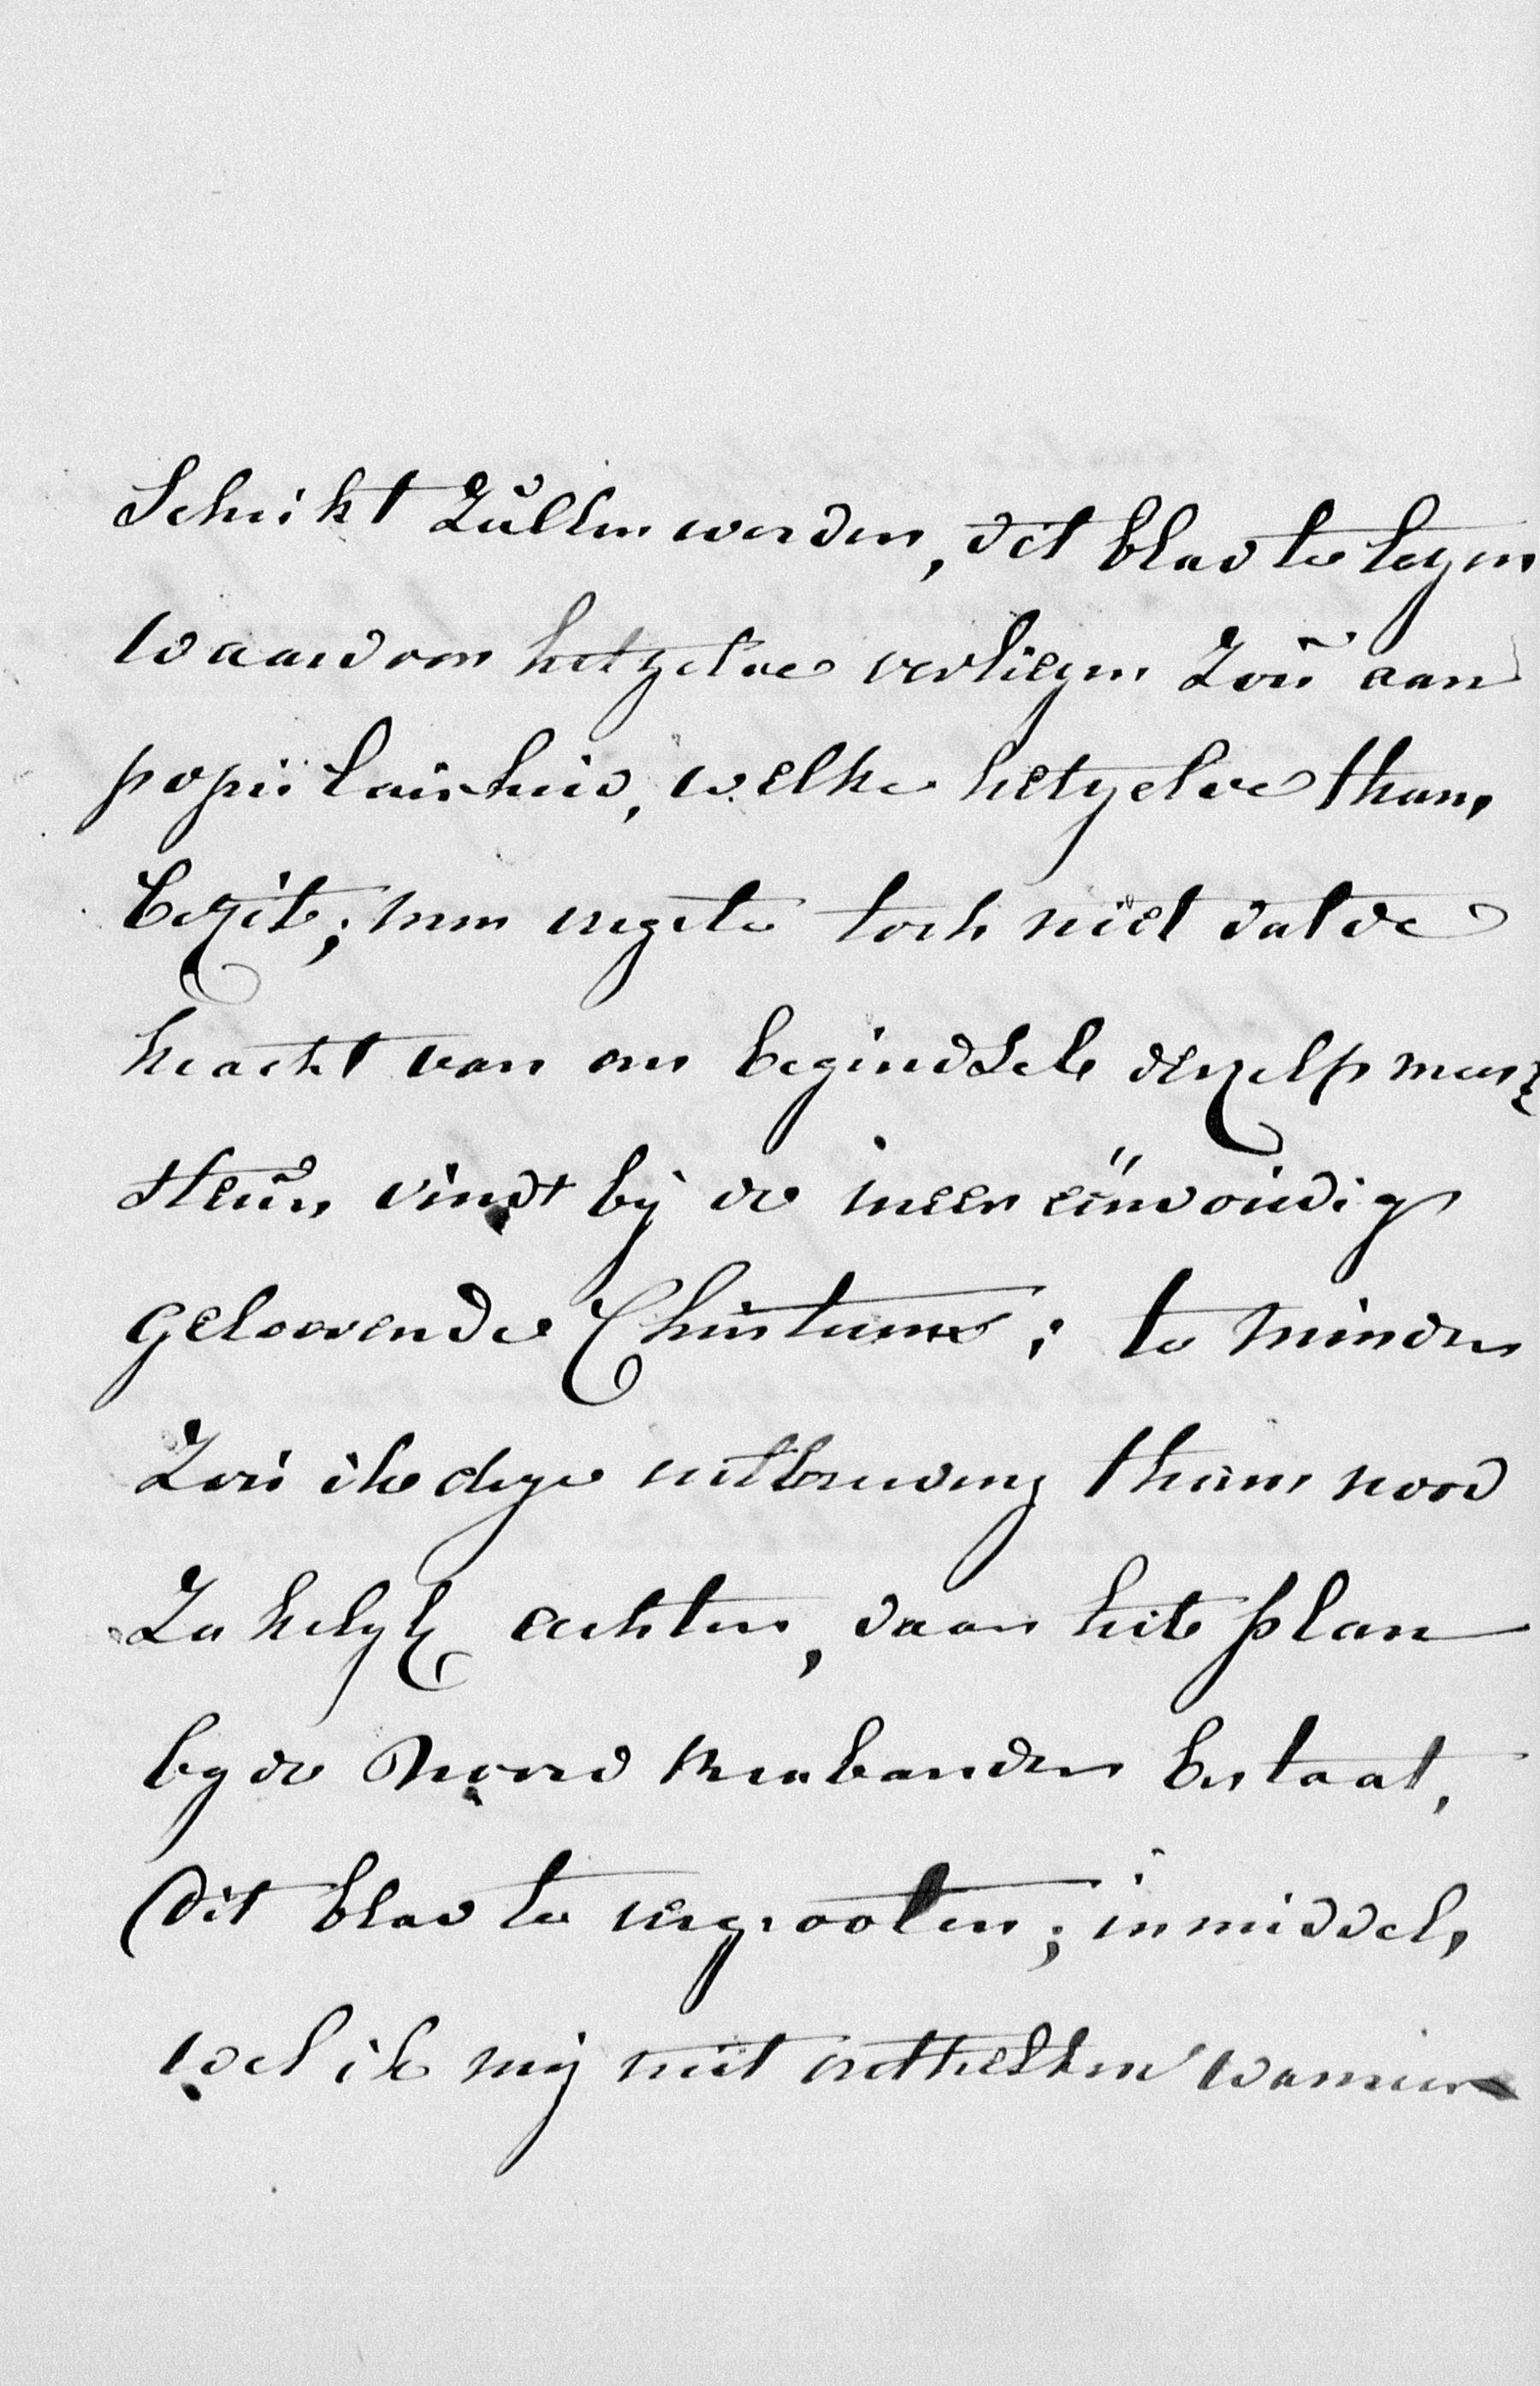 Schikt Zullen worden, dit blad te lezen
waardoor hetzelve verliezen Zou aan
populairheid, welke hetzelve thans
bezit; men vergete toch niet dat de
kracht van ons beginsel meest
steun vindt bij de meer eenvoudig
geloovende Christenen; te minder
Zou ik deze uitbreiding thans nood
Zakelyk achten, daar het plan
by de Noord Brabanders bestaat,
dit blad te vergrooten; inmiddels
wel ik mij niet onttrekken wanneer